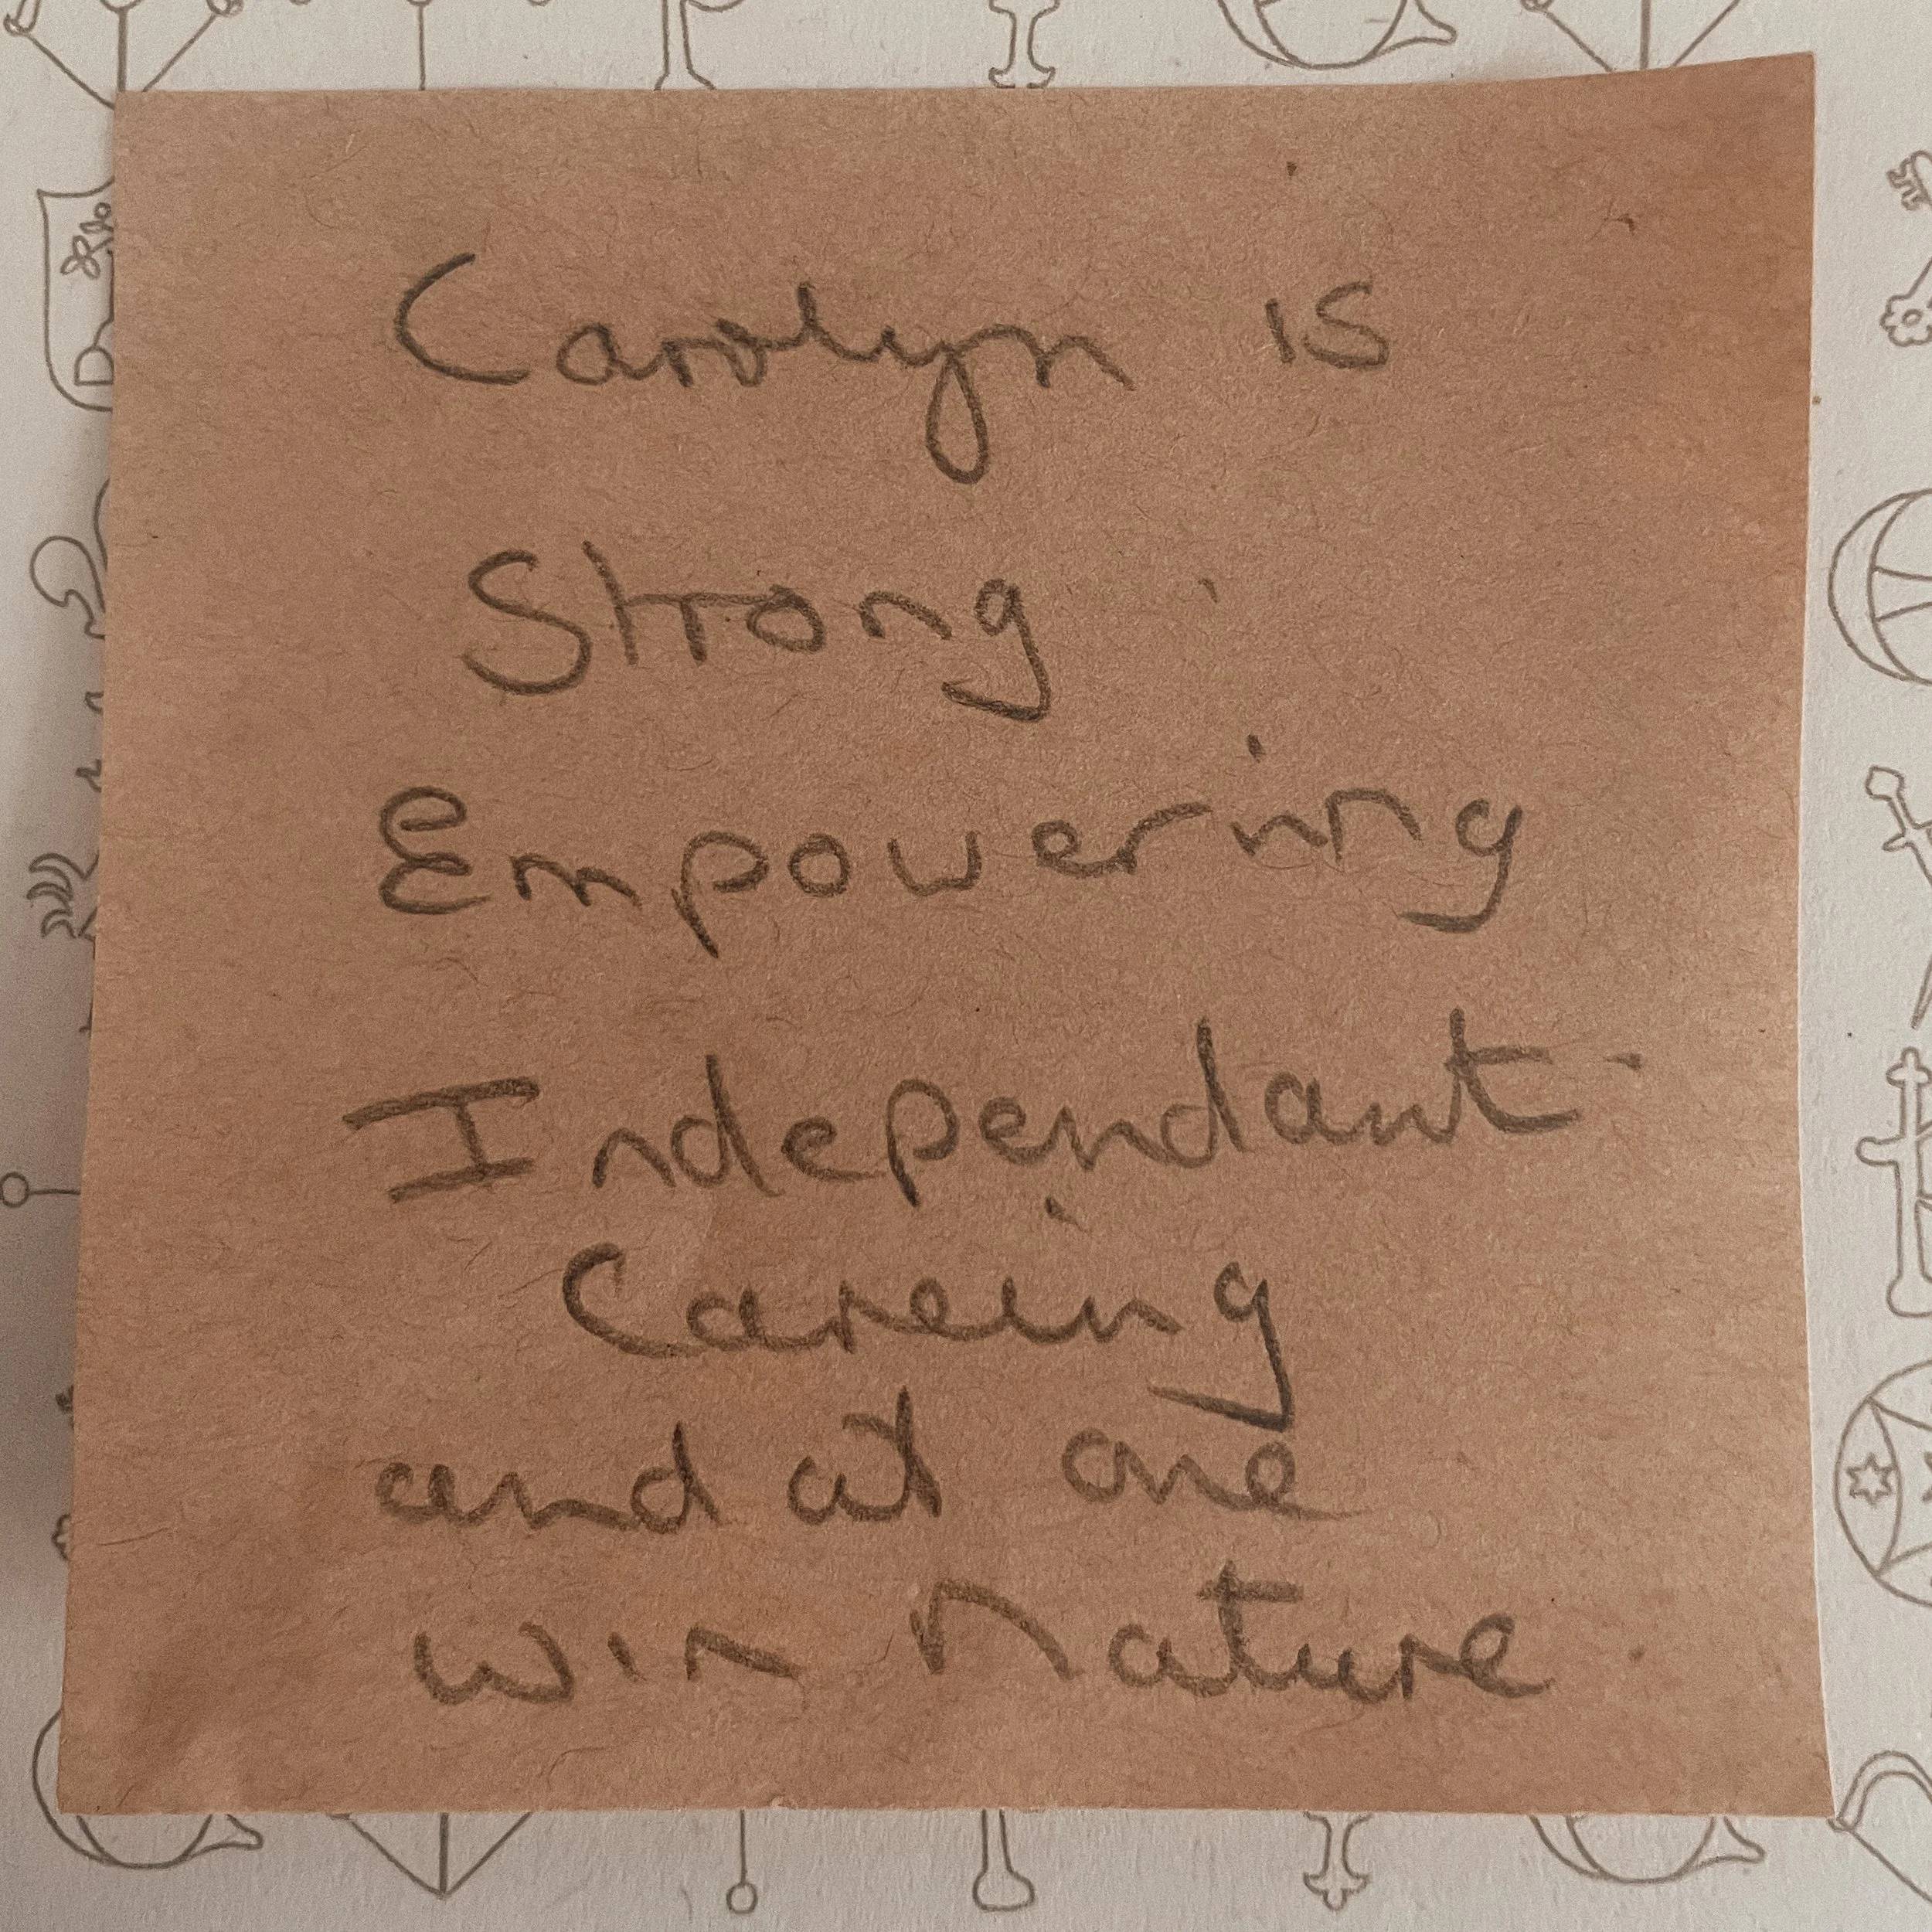 Carolyn is
Strong
Empowering
Independant
Careing
and at one
win Nature